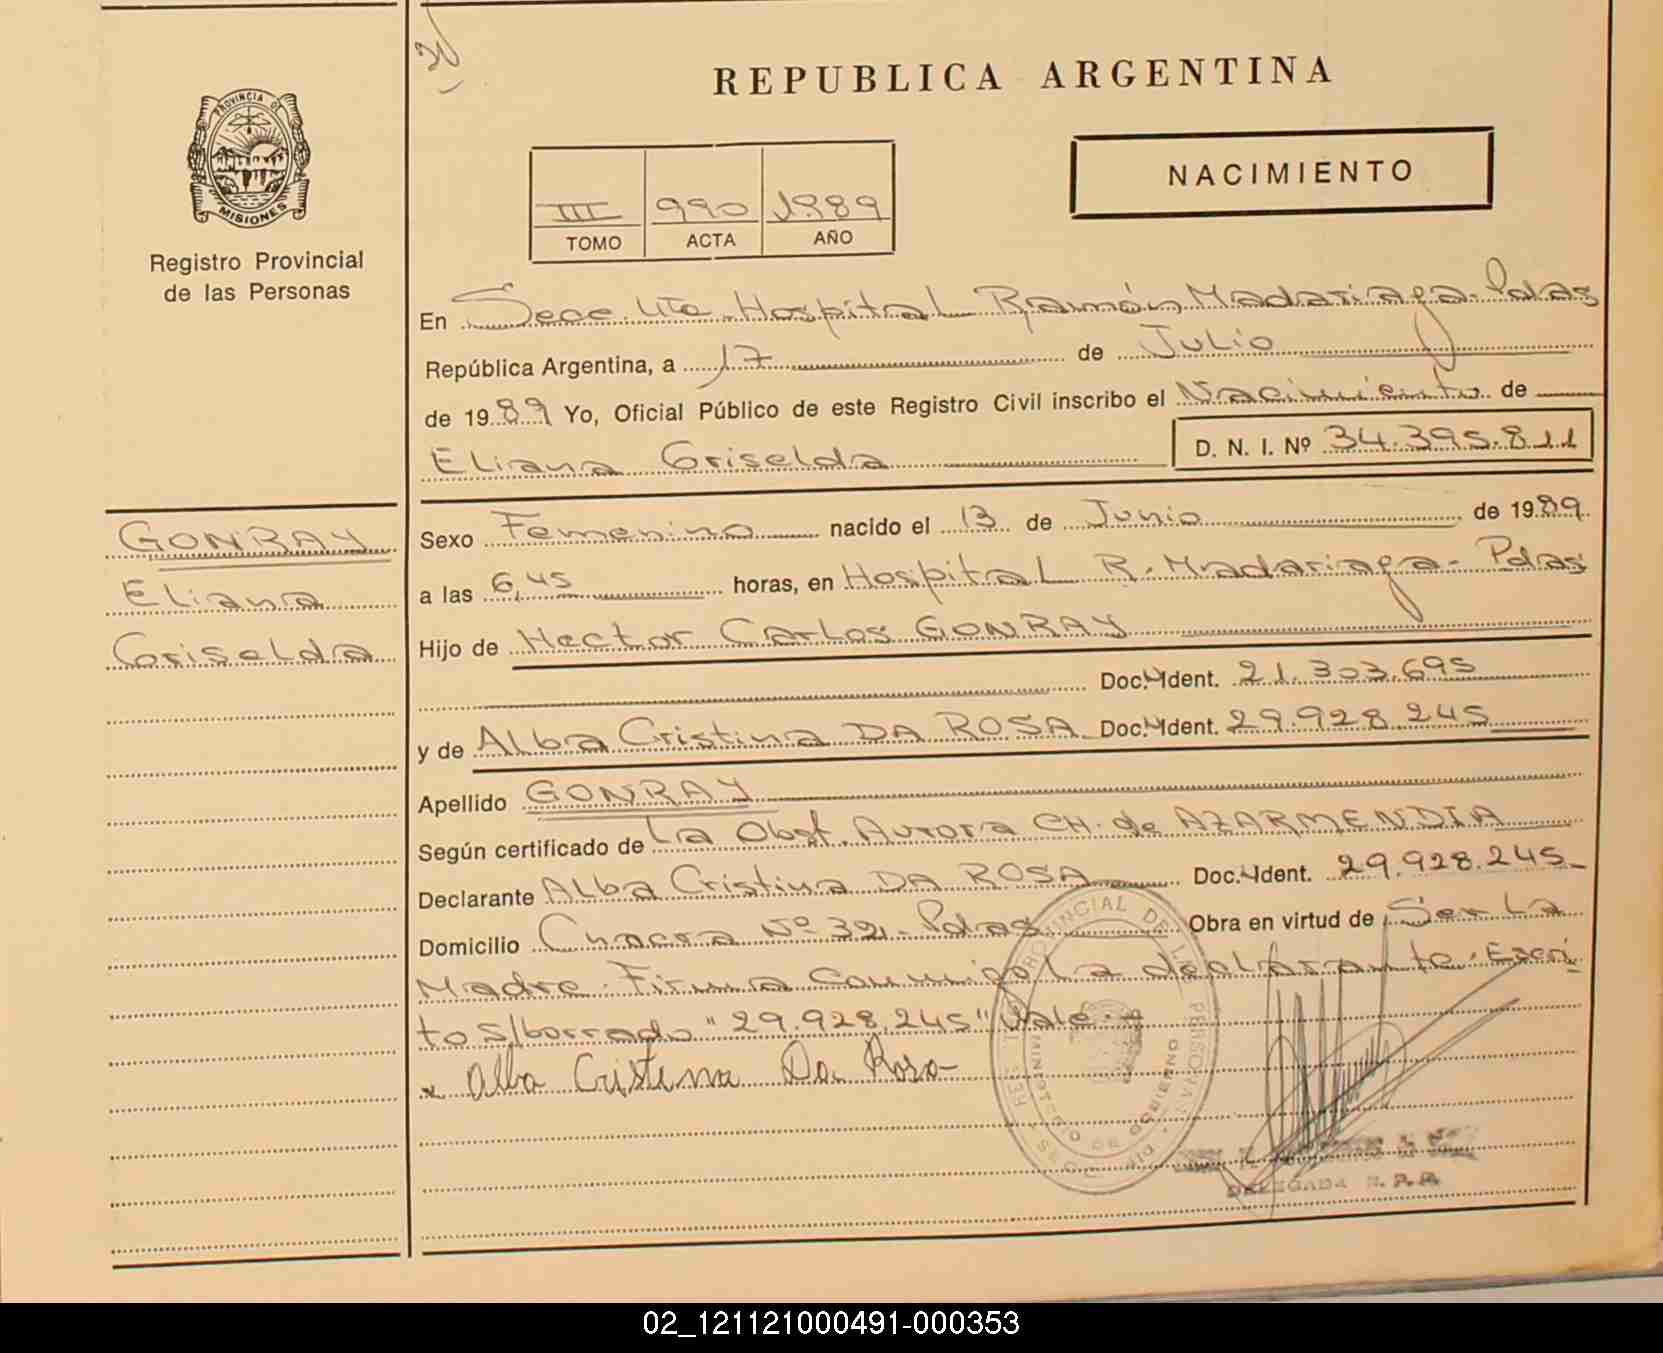 REPUBLICA ARGENTINA
PROVINCIA DE
MISIONES
Registro Provincial
de las Personas
NACIMIENTO
III 990 1989
TOMO ACTA AÑO
En Secc. Hospital Ramón Madariaga - Pdas
República Argentina, a 17 de Julio
de 1989 Yo, Oficial Público de este Registro Civil inscribo el Nacimiento de
Eliana Griselda D. N. I. Nº 34.395.811
GONRAY
Eliana
Griselda
Sexo Femenino nacido el 13 de Junio de 1989
a las 6,45 horas, en Hospital R. Madariaga - Pdas
Hijo de Hector Carlos GONRAY
Doc. Ident. 21.303.695
y de Alba Cristina DA ROSA Doc. Ident. 29.928.245
Apellido GONRAY
Según certificado de La Obst. Aurora CH. de AZARMENDIA
Declarante Alba Cristina DA ROSA Doc. Ident. 29.928.245
Domicilio Chacra Nº 32 - Pdas Obra en virtud de Ser La
Madre. Firma Conmigo La declarante. Escri
to s/borrado "29.928.245" Vale.
x Alba Cristina Da Rosa
DELEGADA R. P. P.
02_121121000491-000353